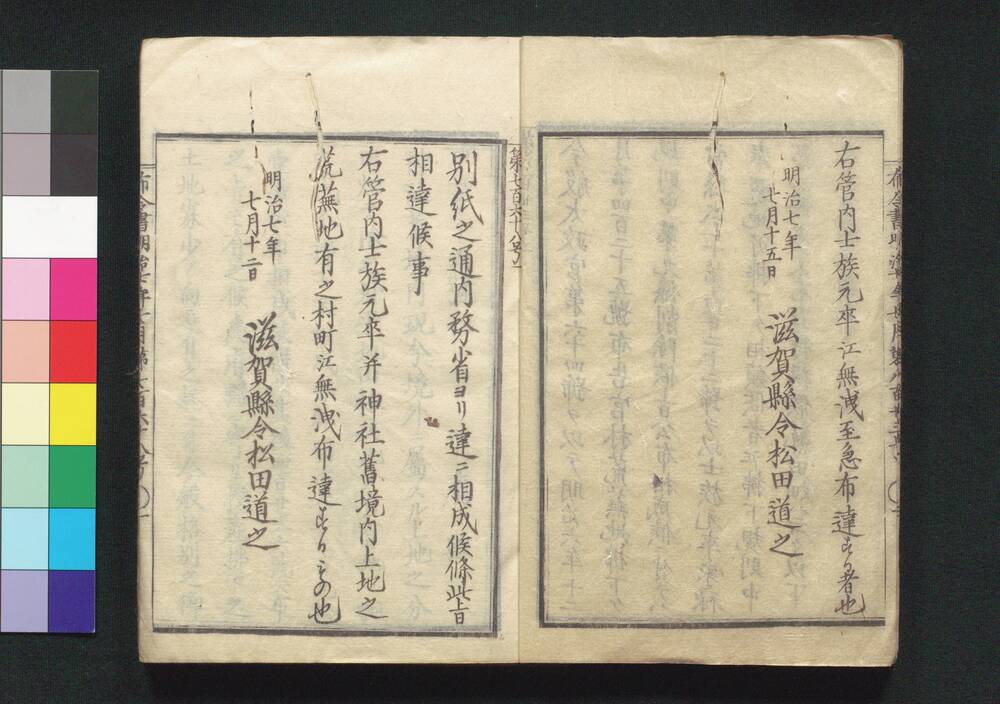 右管内士族元卒江無洩至急布達する者也
明治七年
七月十五日
滋賀縣令松田道之
第七百六十八号
別紙之通内務省ヨリ達ニ相成候條此旨
相達候事
右管内士族元卒并神社舊境内上地之
荒蕪地有之村町江無洩布達するもの也
明治七年
七月十二日
滋賀縣令松田道之